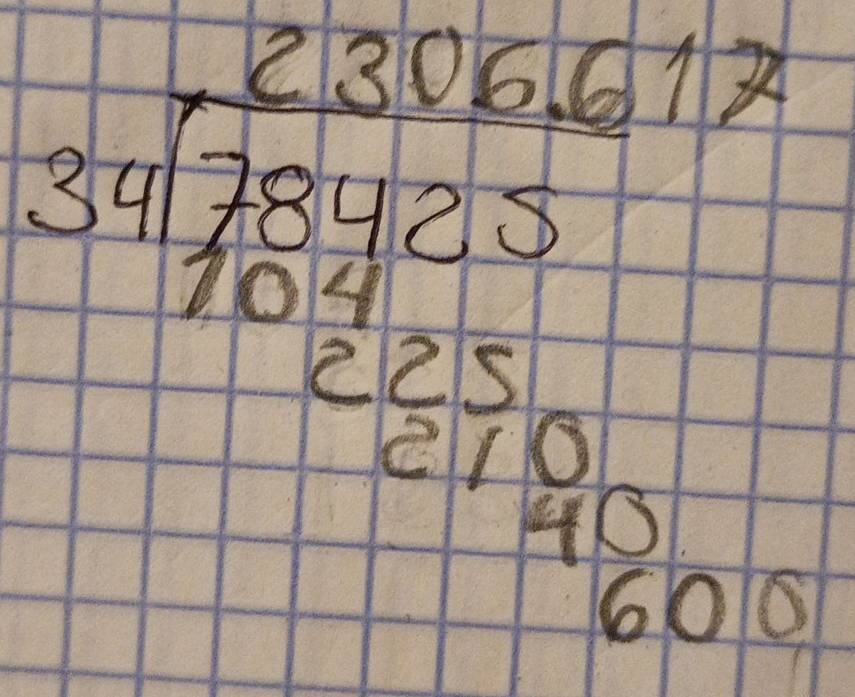 2306.617
34 78425
104
225
210
40
600